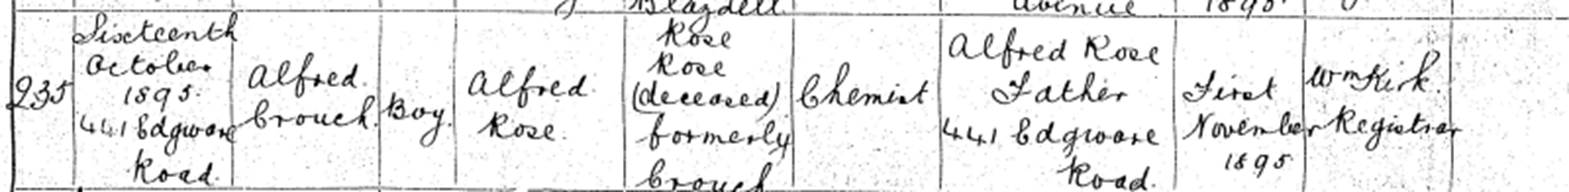 Blagdell
Avenue
1895.
235
Sixteenth
October
1895.
441 Edgware
Road.
Alfred.
Crouch.
Boy.
Alfred.
Rose.
Rose
Rose
(deceased)
formerly
Crouch
Chemist
Alfred Rose
Father
441 Edgware
Road.
First
November
1895
Wm Kirk.
Registrar